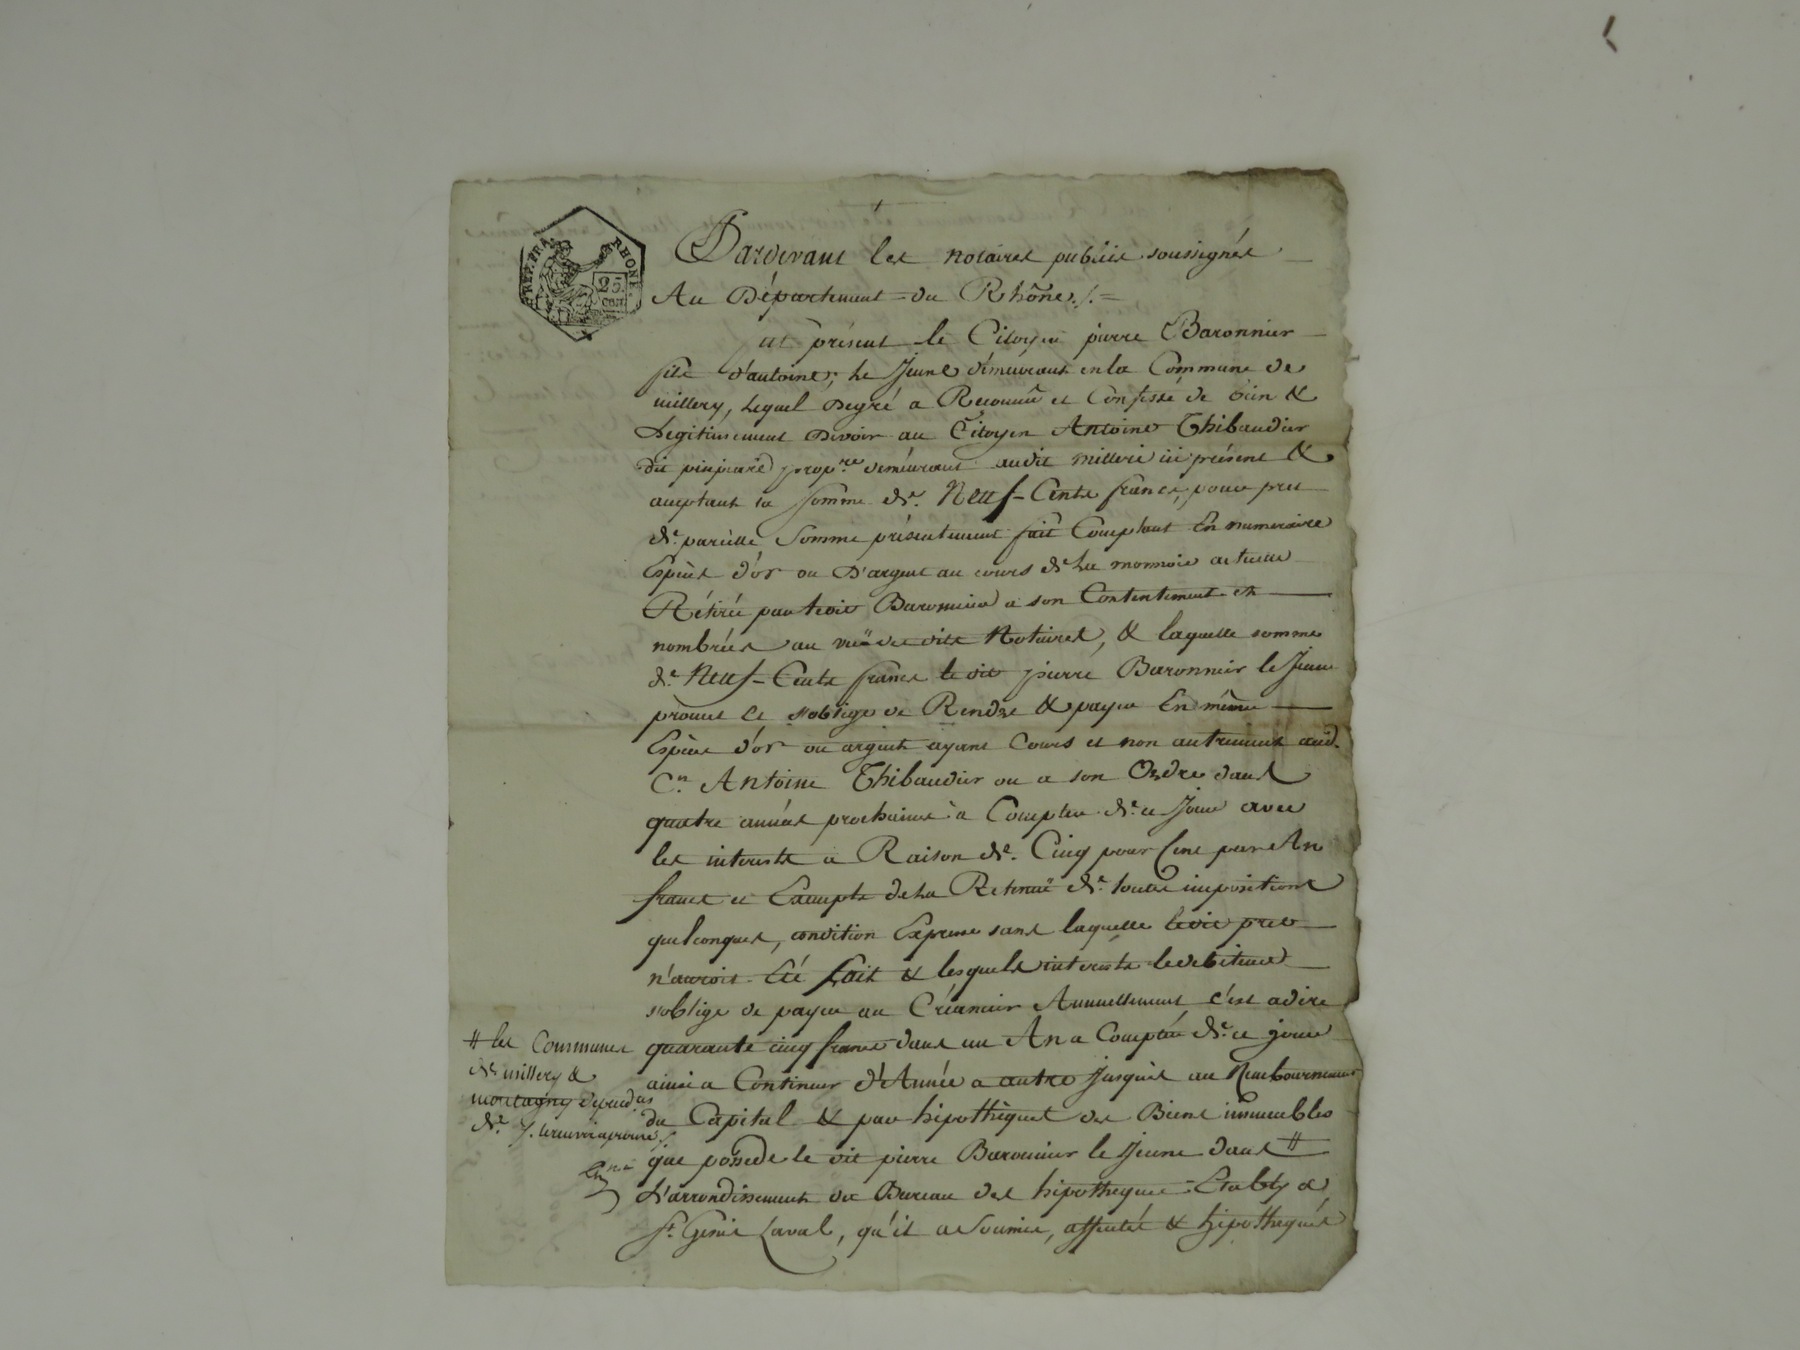 RÉP. FRA.
RHONE
25.
cen.
Pardevant les notaires publics soussignés
Au Département = du Rhône ./. =
fut présent le Citoyen pierre Baronnier
fils d'antoine, le Jeune démeurant en la Commune de
millery, lequel Degré a Reconnu et Confessé de bien &
Légitimement Devoir au Citoyen Antoine Thibaudier
dit propre démeurant audit milleri ici présent &
acceptant la somme de. Neuf-Cents francs, pour pret
de. pareille Somme présentement fait Comptant En numeraire
Espèces d'or ou D'argent au cours de La monnoie actuelle
Rétirée par ledit Baronnier a son Contentement et
nombrées au vuë des dits Notaires, & laquelle somme
de. Neuf-Cents francs le dit pierre Baronnier le Jeune
promet et s'oblige de Rendre & payer En même
Espèces d'or ou argent ayant Cours et non autrement aud.
C.n Antoine Thibaudier ou a son Ordre dans
quatre années prochaines à Compter de. ce Jour avec
les interests a Raison de. Cinq pour Cent par An
francs et Exempts de La Retenuë de. toutes impositions
quelconques, condition Expresse sans laquelle ledit pret
n'auroit Eté fait & lesquels interests le debiteur
s'oblige de payer au Créancier Annuellement, c'est adire
quarante cinq francs dans un An a Compter de. ce jour
ainsi a Continuer d'Année a autre Jusques au Remboursement
du Capital & par hipothèques des Biens immeubles
que possede le dit pierre Baronnier le Jeune dans #
L'arrondissement du Bureau des hipotheques Etably a
S.t Genis Laval, qu'il a Soumis, affectés & hipothequés
# les Communes
de millery &
montagny